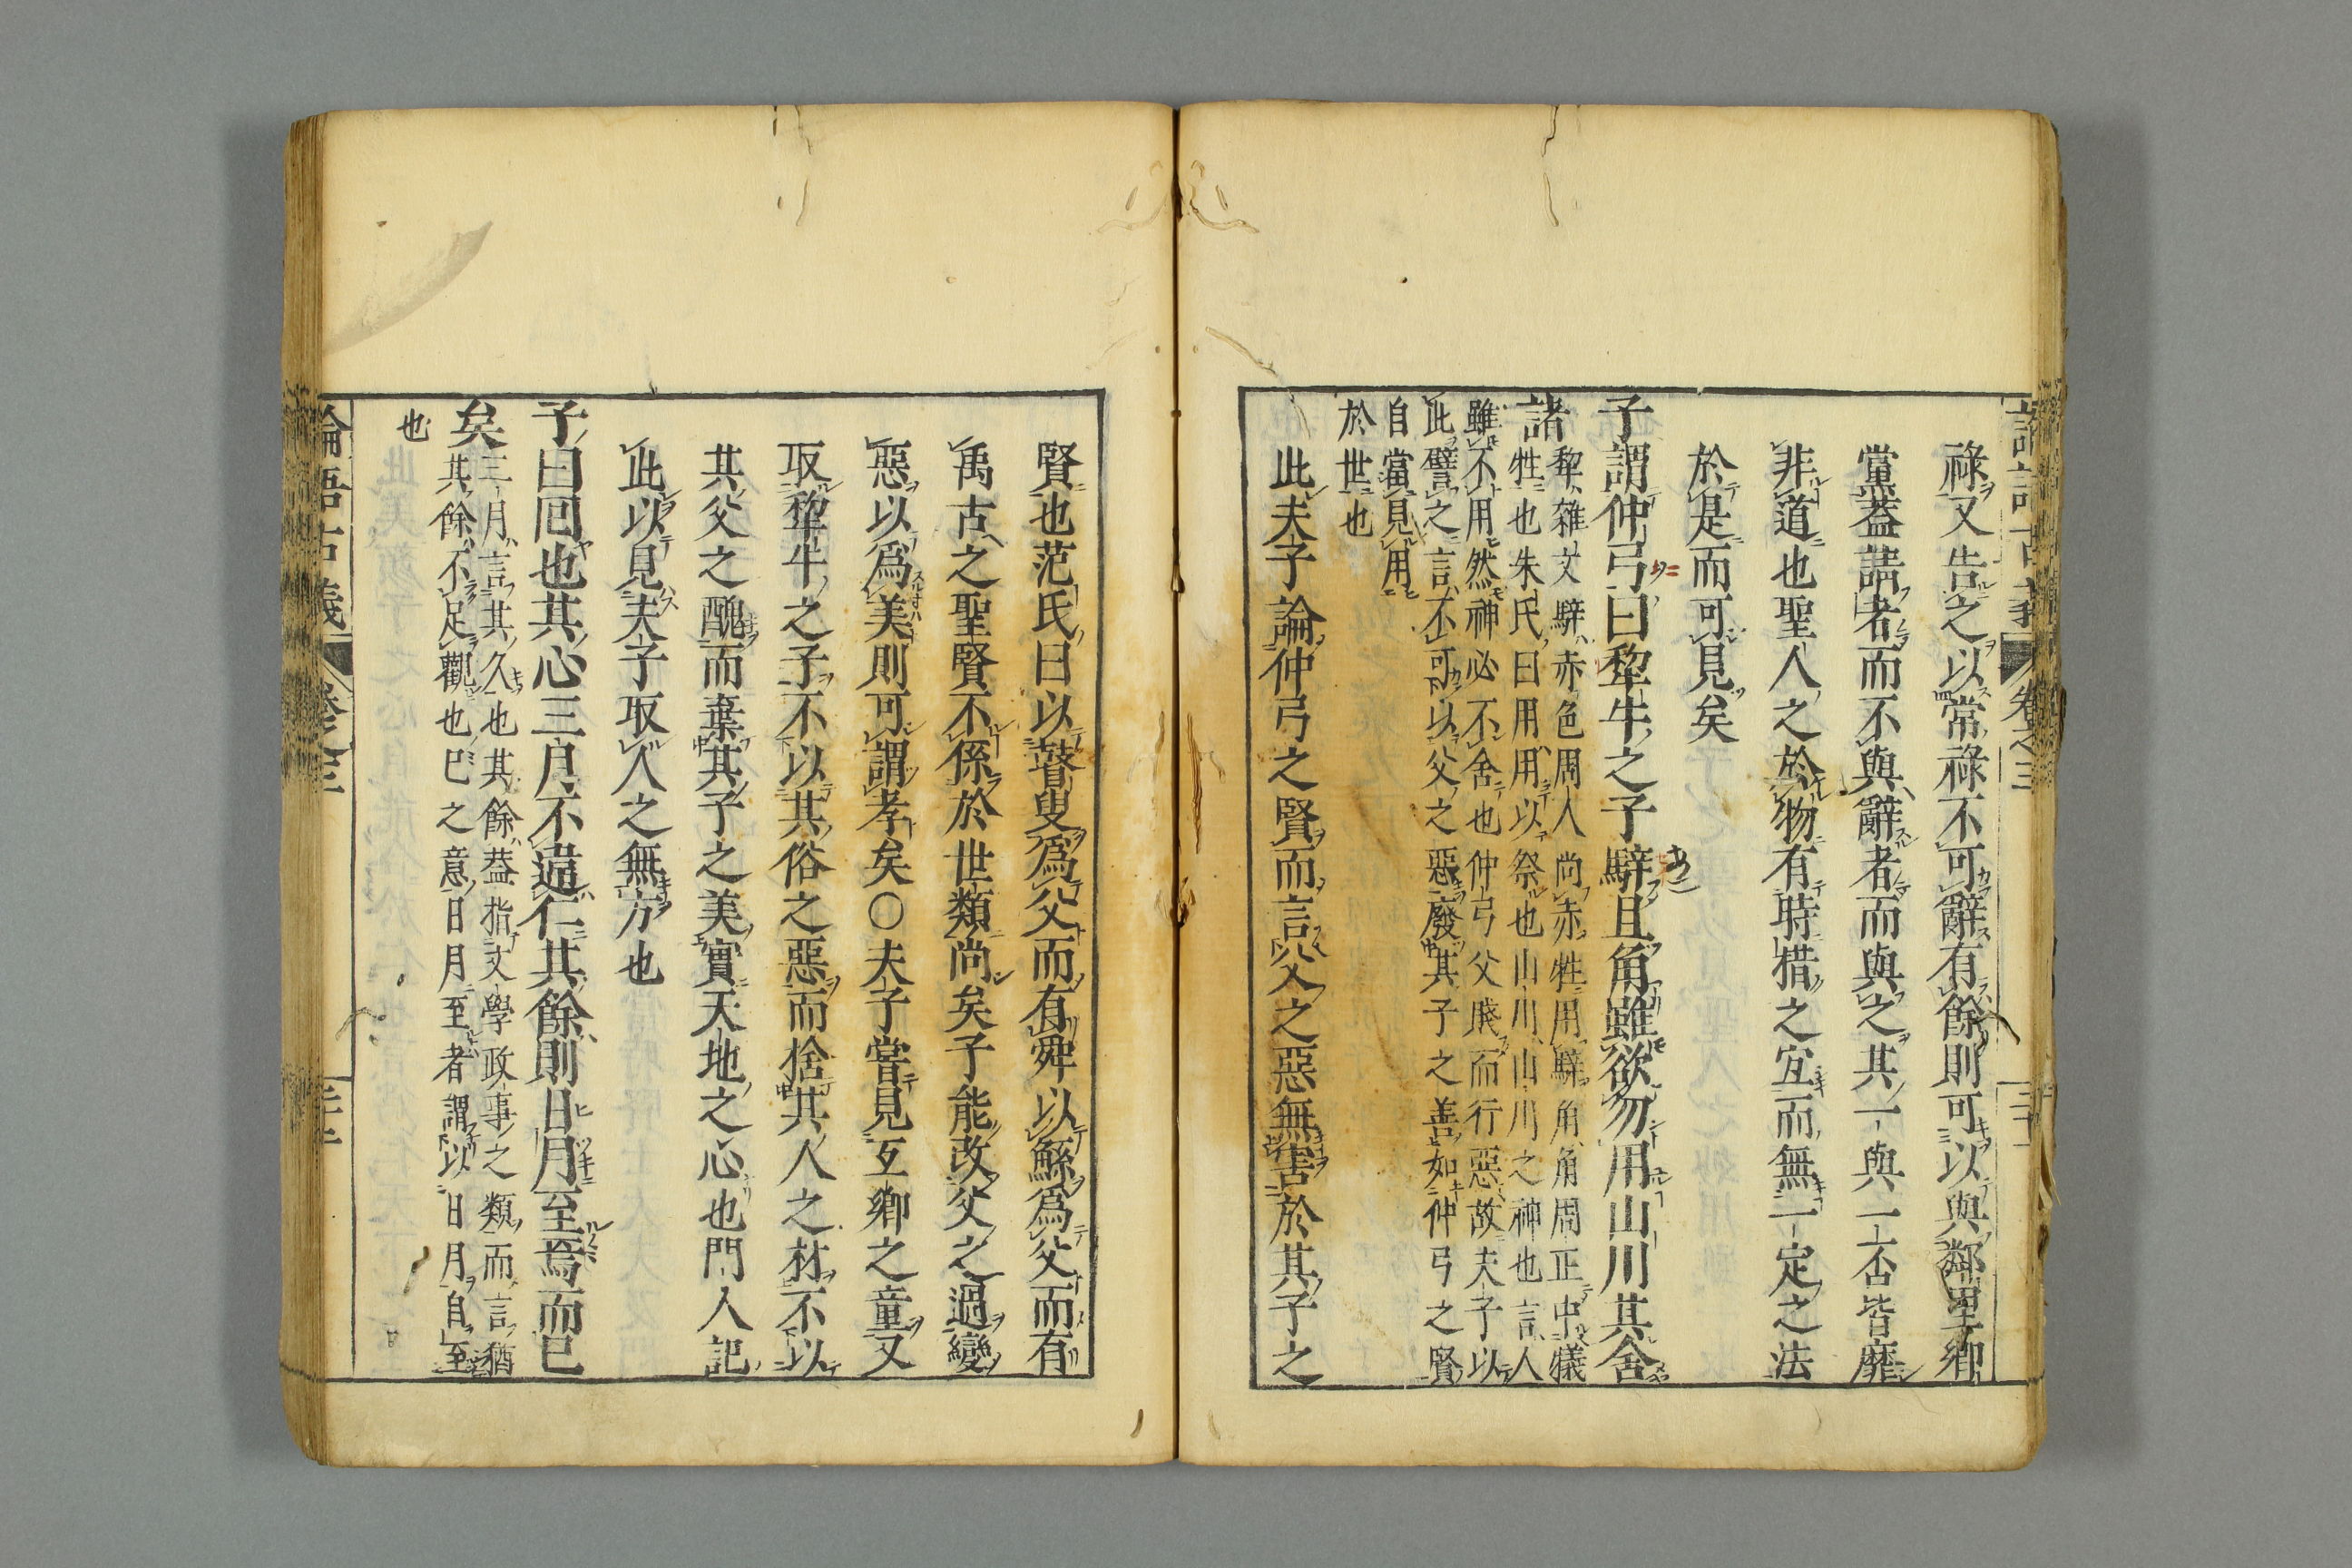 祿又告之以常祿不可辭有餘則可以與鄰里鄉
黨蓋請者而不與辭者而與之其一與一否皆靡
非道也聖人之於物有時措之宜而無一定之法
於是而可見矣
子謂仲弓曰犂牛之子騂且角雖欲勿用山川其舍
諸
犂雜文騂赤色周人尚赤牲用騂角角周正中犠
牲也朱氏曰用用以祭也山川山川之神也言人
雖不用然神必不舍也仲弓父賤而行惡故夫子以
此譬之言不可以父之惡廢其子之善如仲弓之賢
自當見用
於世也
此夫子論仲弓之賢而言父之惡無害於其子之
論語古義
卷之三
賢也范氏曰以瞽叟爲父而有舜以鯀爲父而有
禹古之聖賢不係於世類尚矣子能改父之過變
惡以爲美則可謂孝矣〇夫子嘗見互鄉之童又
取犂牛之子不以其俗之惡而捨其人之材不以
其父之醜而棄其子之美實天地之心也門人記
此以見夫子取人之無方也
子曰回也其心三月不違仁其餘則日月至焉而已
矣
三月言其久也其餘蓋指文學政事之類而言猶
其餘不足觀也已之意日月至者謂以日月自至
也
論語古義
卷之三